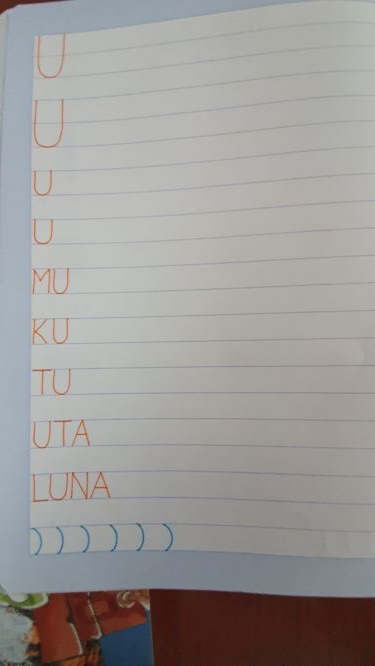 U
U
U
U
MU
KU
TU
UTA
LUNA
) ) ) ) ) )